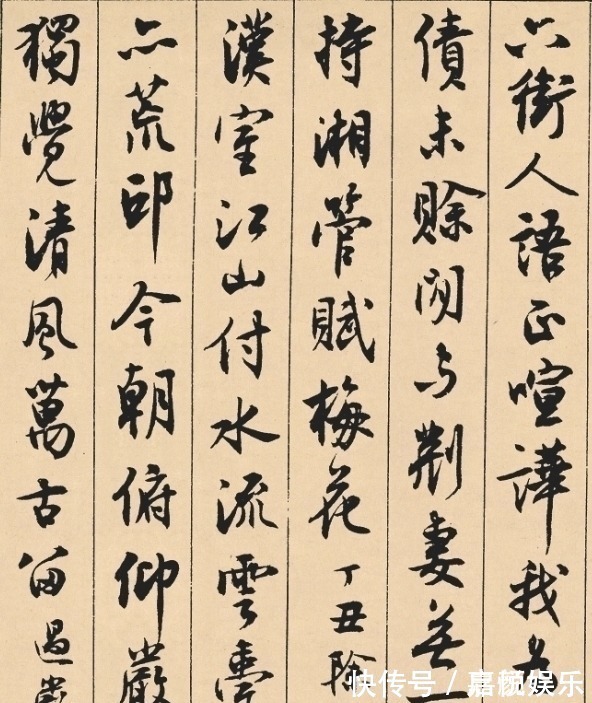 六街人語正喧譁我
債未賒閒与荆妻無
持湘管賦梅花 丁丑除
漢室江山付水流雲臺
亦荒邱今朝俯仰嚴
獨覺清風萬古留 過
快传号 / 嘉颜娱乐